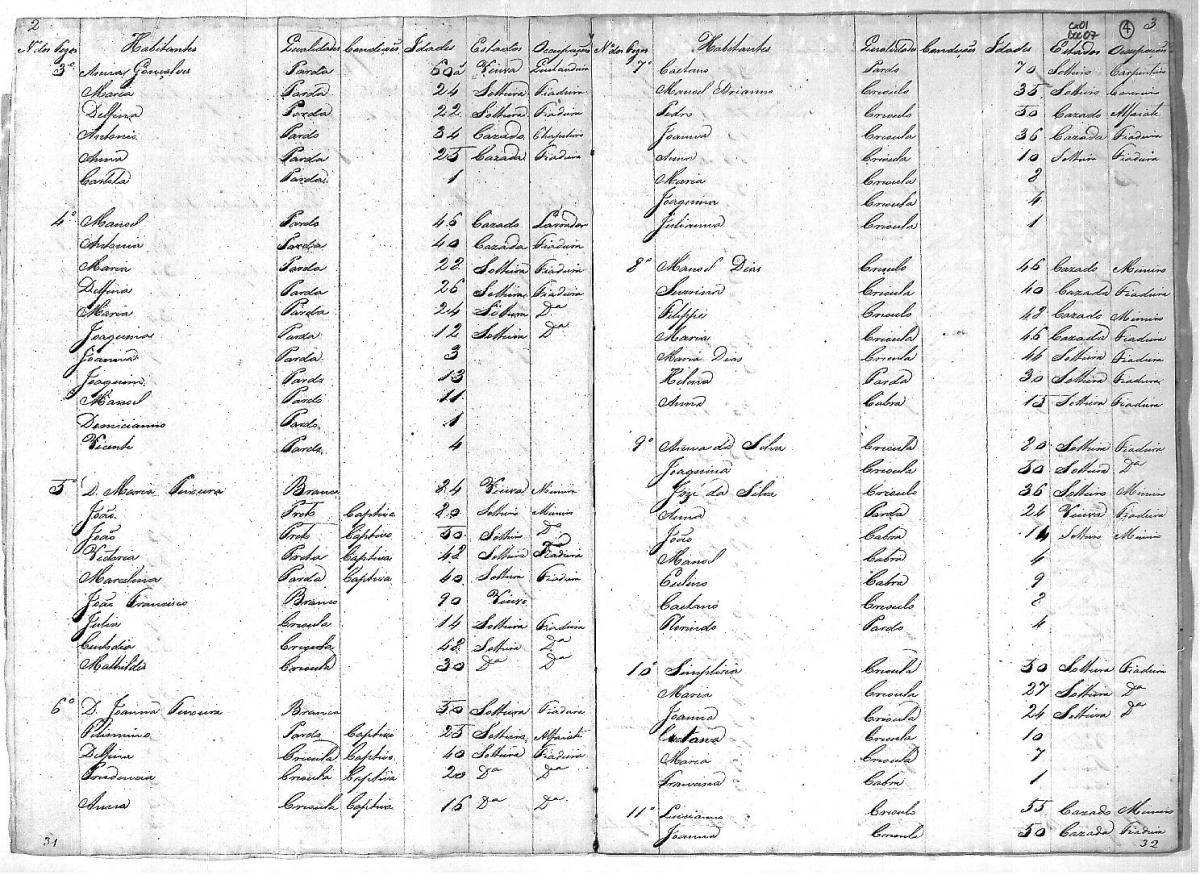 2
Nº dos Fogos Habitantes Qualidades Condições Idades Estados Occupações
3º Anna Gonçalves Parda 60 Viuva
Maria Parda 24 Solteira Fiadeira
Delfina Parda 22 Solteira Fiadeira
Antonio Pardo 34 Cazado Chapeleiro
Anna Parda 25 Cazada Fiadeira
Parda 1
4º Manoel Pardo 46 Cazado Lavrador
Antonia Parda 40 Cazada Fiadeira
Maria Parda 22 Solteira Fiadeira
Delfina Parda 26 Solteira Fiadeira
Maria Parda 24 Solteira Dª
Joaquina Parda 12 Solteira Dª
Joanna Parda 3
Joaquim Pardo 13
Manoel Pardo 11
Domicianno Pardo 1
Vicente Pardo 4
5º D. Maria Teixeira Branca 24 Viuva Mineira
João Preto Captivo 20 Solteiro Mineiro
João Preto Captivo 50 Solteiro Dº
Victoria Preta Captiva 42 Solteira Fiadeira
Marcelina Parda Captiva 40 Solteira Fiadeira
João Francisco Branco 90 Viuvo
Julia Crioula 14 Solteira Fiadeira
Custodia Crioula 42 Solteira Dª
Mathildes Crioula 30 Dª Dª
6º D. Joanna Teixeira Branca 50 Solteira Fiadeira
Pardo Captivo 25 Solteiro Alfaiate
Delfina Crioula Captiva 40 Solteira Fiadeira
Prudencia Crioula Captiva 20 Dª Dª
Anna Crioula Captiva 16 Dª Dª
31
Cx01
Doc07
4
3
Nº dos Fogos Habitantes Qualidades Condições Idades Estados Occupações
7º Caetano Pardo 70 Solteiro Carpinteiro
Manoel Adrianno Crioulo 35 Solteiro
Pedro Crioulo 50 Cazado Alfaiate
Joanna Crioula 36 Cazada Fiadeira
Anna Crioula 10 Solteira Fiadeira
Maria Crioula 2
Joaquina Crioula 4
Julianna Crioula 1
8º Manoel Dias Crioulo 46 Cazado Mineiro
Crioula 40 Cazada Fiadeira
Filippe Crioulo 42 Cazado Mineiro
Maria Crioula 46 Cazada Fiadeira
Maria Dias Crioula 44 Solteira Fiadeira
Helena Parda 30 Solteira Fiadeira
Anna Cabra 15 Solteira Fiadeira
9º Anna da Silva Crioula 20 Solteira Fiadeira
Joaquina Crioula 50 Solteira Dª
José da Silva Crioulo 36 Solteiro Mineiro
Anna Parda 24 Viuva Fiadeira
João Cabra 14 Solteiro Mineiro
Manoel Cabra 4
Cabra 9
Caetano Crioulo 2
Florindo Pardo 4
10º Simplicia Crioula 50 Solteira Fiadeira
Maria Crioula 27 Solteira Dª
Joanna Crioula 24 Solteira Dª
Caetana Crioula 10
Maria Crioula 7
Francisca Cabra 1
11º Lucianno Crioulo 55 Cazado Mineiro
Joanna Crioula 50 Cazada Fiadeira
32